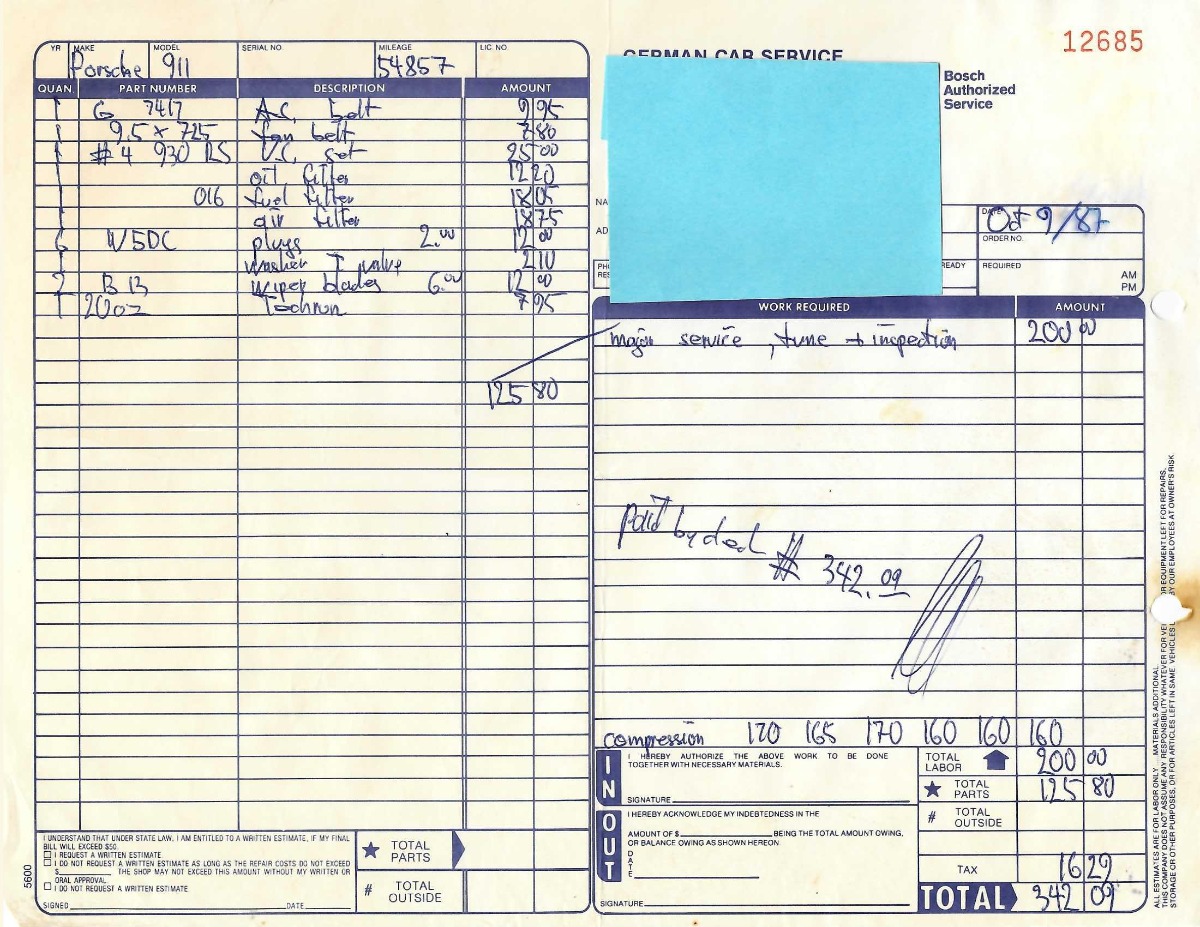 12685
GERMAN CAR SERVICE
Bosch
Authorized
Service
YR MAKE MODEL SERIAL NO. MILEAGE LIC. NO.
Porsche 911 54857
QUAN. PART NUMBER DESCRIPTION AMOUNT
1 G 7417 A.C. belt 9 95
1 9.5 x 725 fan belt 7 80
1 #4 930 RS V.C. set 25 00
1 oil filter 12 20
1 016 fuel filter 18 05
1 air filter 18 75
6 W5DC plugs 2.00 12 00
1 washer T valve 2 10
2 BB wiper blades 6.00 12 00
1 20oz Techron 7 95
125 80
I UNDERSTAND THAT UNDER STATE LAW, I AM ENTITLED TO A WRITTEN ESTIMATE, IF MY FINAL
BILL WILL EXCEED $50.
I REQUEST A WRITTEN ESTIMATE
I DO NOT REQUEST A WRITTEN ESTIMATE AS LONG AS THE REPAIR COSTS DO NOT EXCEED
$ THE SHOP MAY NOT EXCEED THIS AMOUNT WITHOUT MY WRITTEN OR
ORAL APPROVAL.
I DO NOT REQUEST A WRITTEN ESTIMATE
SIGNED DATE
TOTAL PARTS
# TOTAL OUTSIDE
5600
NA
AD
DATE Oct 9/87
ORDER NO.
PH
RES
READY
REQUIRED
AM
PM
WORK REQUIRED AMOUNT
major service, tune + inspection 200 00
342.09
compression 170 165 170 160 160 160
IN
I HEREBY AUTHORIZE THE ABOVE WORK TO BE DONE
TOGETHER WITH NECESSARY MATERIALS.
SIGNATURE
OUT
I HEREBY ACKNOWLEDGE MY INDEBTEDNESS IN THE
AMOUNT OF $ BEING THE TOTAL AMOUNT OWING,
OR BALANCE OWING AS SHOWN HEREON.
DATE
SIGNATURE
TOTAL LABOR 200 00
TOTAL PARTS 125 80
# TOTAL OUTSIDE
TAX 16 29
TOTAL 342 09
ALL ESTIMATES ARE FOR LABOR ONLY MATERIALS ADDITIONAL.
THIS COMPANY DOES NOT ASSUME ANY RESPONSIBILITY WHATEVER FOR OR EQUIPMENT LEFT FOR REPAIRS,
STORAGE OR OTHER PURPOSES, OR FOR ARTICLES LEFT IN SAME. VEHICLES BY OUR EMPLOYEES AT OWNER'S RISK.